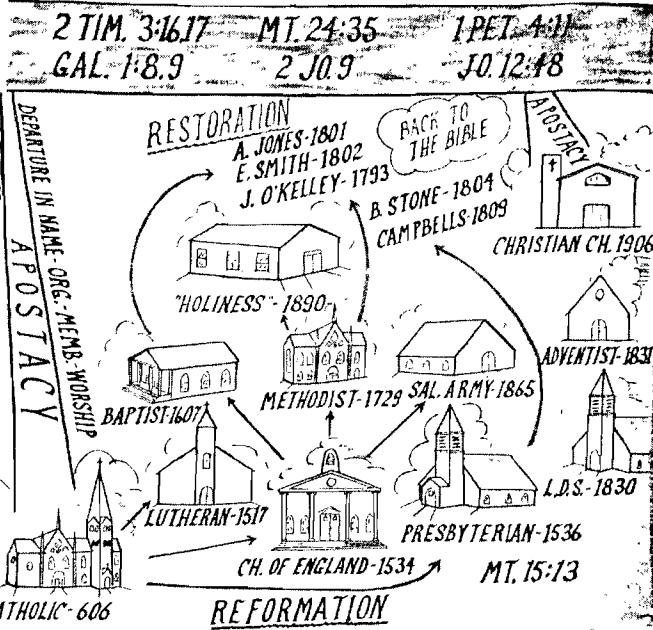 2 TIM. 3:16.17 MT. 24:35 1 PET. 4:11
GAL. 1:8.9 2 JO. 9 JO. 12:48
DEPARTURE IN NAME-ORG.-MEMB.-WORSHIP
APOSTACY
RESTORATION
A. JONES-1801
E. SMITH-1802
J. O'KELLEY-1793
BACK TO
THE BIBLE
B. STONE-1804
CAMPBELLS-1809
APOSTACY
CHRISTIAN CH. 1906
"HOLINESS"-1890-
ADVENTIST-1831
BAPTIST-1607
METHODIST-1729
SAL. ARMY-1865
LUTHERAN-1517
L.D.S.-1830
CH. OF ENGLAND-1534
PRESBYTERIAN-1536
MT. 15:13
ATHOLIC-606
REFORMATION